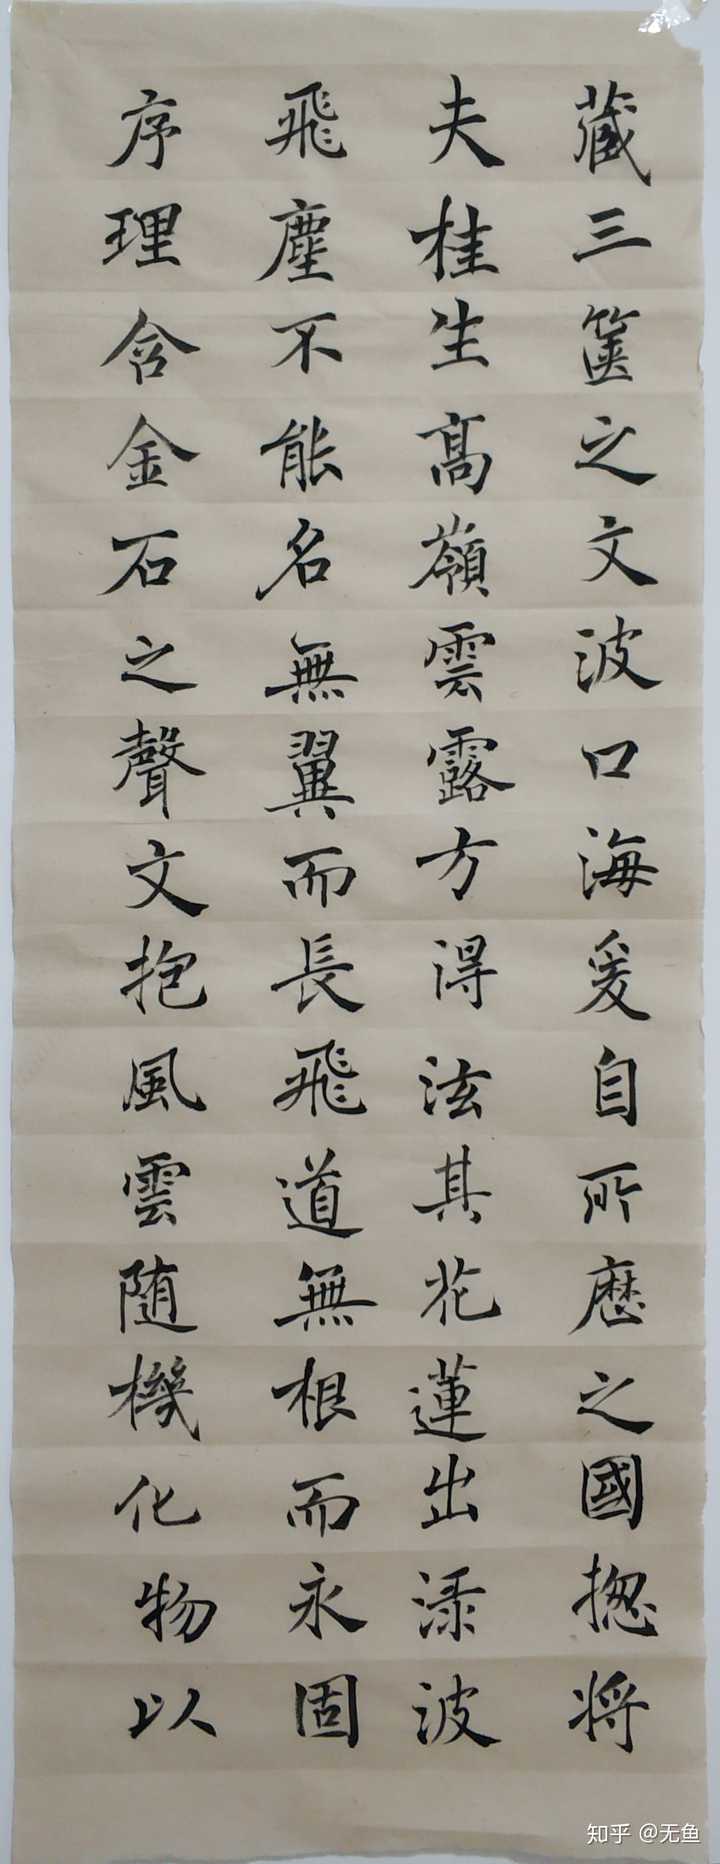 藏三箧之文波口海爰自所歷之國揔将
夫桂生高嶺雲露方得泫其花蓮出渌波
飛塵不能名無翼而長飛道無根而永固
序理含金石之聲文抱風雲随機化物以
知乎 @无鱼